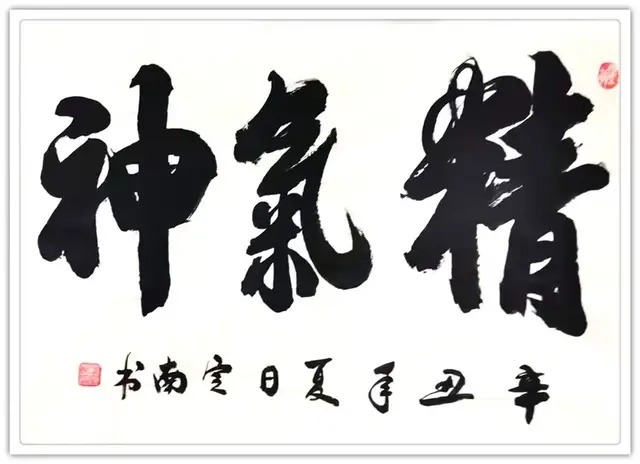 精氣神
辛丑年夏日定南书